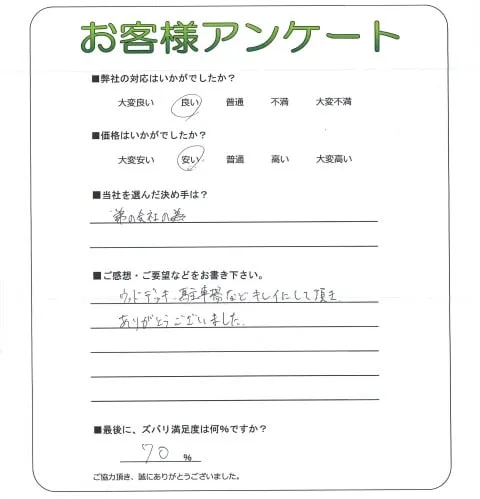 お客様アンケート
■弊社の対応はいかがでしたか？
大変良い 良い 普通 不満 大変不満
■価格はいかがでしたか？
大変安い 安い 普通 高い 大変高い
■当社を選んだ決め手は？
弟の会社の為
■ご感想・ご要望などをお書き下さい。
ウッドデッキ、駐車場などキレイにして頂き
ありがとうございました。
■最後に、ズバリ満足度は何%ですか？
70 %
ご協力頂き、誠にありがとうございました。